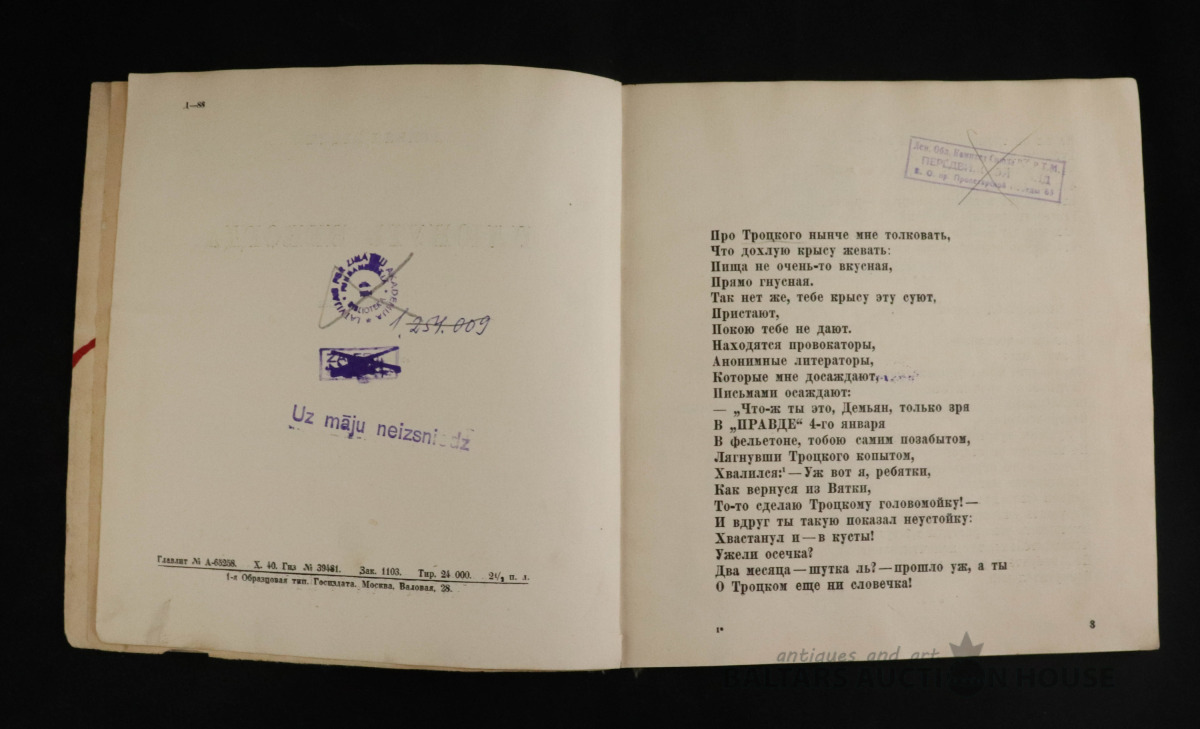 1—88
LATVIJAS PSR ZINĀTŅU AKADĒMIJA
1 254.009
Uz māju neizsniedz
Главлит № А-65258. X. 40. Гиз № 39481. Зак. 1103. Тир. 24 000. 2¼ п. л.
1-я Образцовая тип. Госиздата. Москва, Валовая, 28.
Про Троцкого нынче мне толковать,
Что дохлую крысу жевать:
Пища не очень-то вкусная,
Прямо гнусная.
Так нет же, тебе крысу эту суют,
Пристают,
Покою тебе не дают.
Находятся провокаторы,
Анонимные литераторы,
Которые мне досаждают,
Письмами осаждают:
— „Что-ж ты это, Демьян, только зря
В „ПРАВДЕ“ 4-го января
В фельетоне, тобою самим позабытом,
Лягнувши Троцкого копытом,
Хвалился:¹ — Уж вот я, ребятки,
Как вернуся из Вятки,
То-то сделаю Троцкому головомойку! —
И вдруг ты такую показал неустойку:
Хвастанул и — в кусты!
Ужели осечка?
Два месяца — шутка ль? — прошло уж, а ты
О Троцком еще ни словечка!
1*
3
antiques and art
BALTARS AUCTION HOUSE